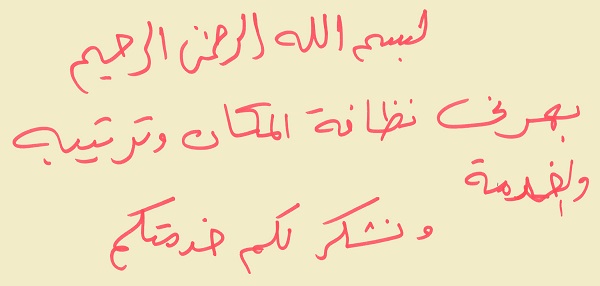 بسم الله الرحمن الرحيم
بهرني نظافة المكان وترتيبه
والخدمة
ونشكر لكم خدمتكم